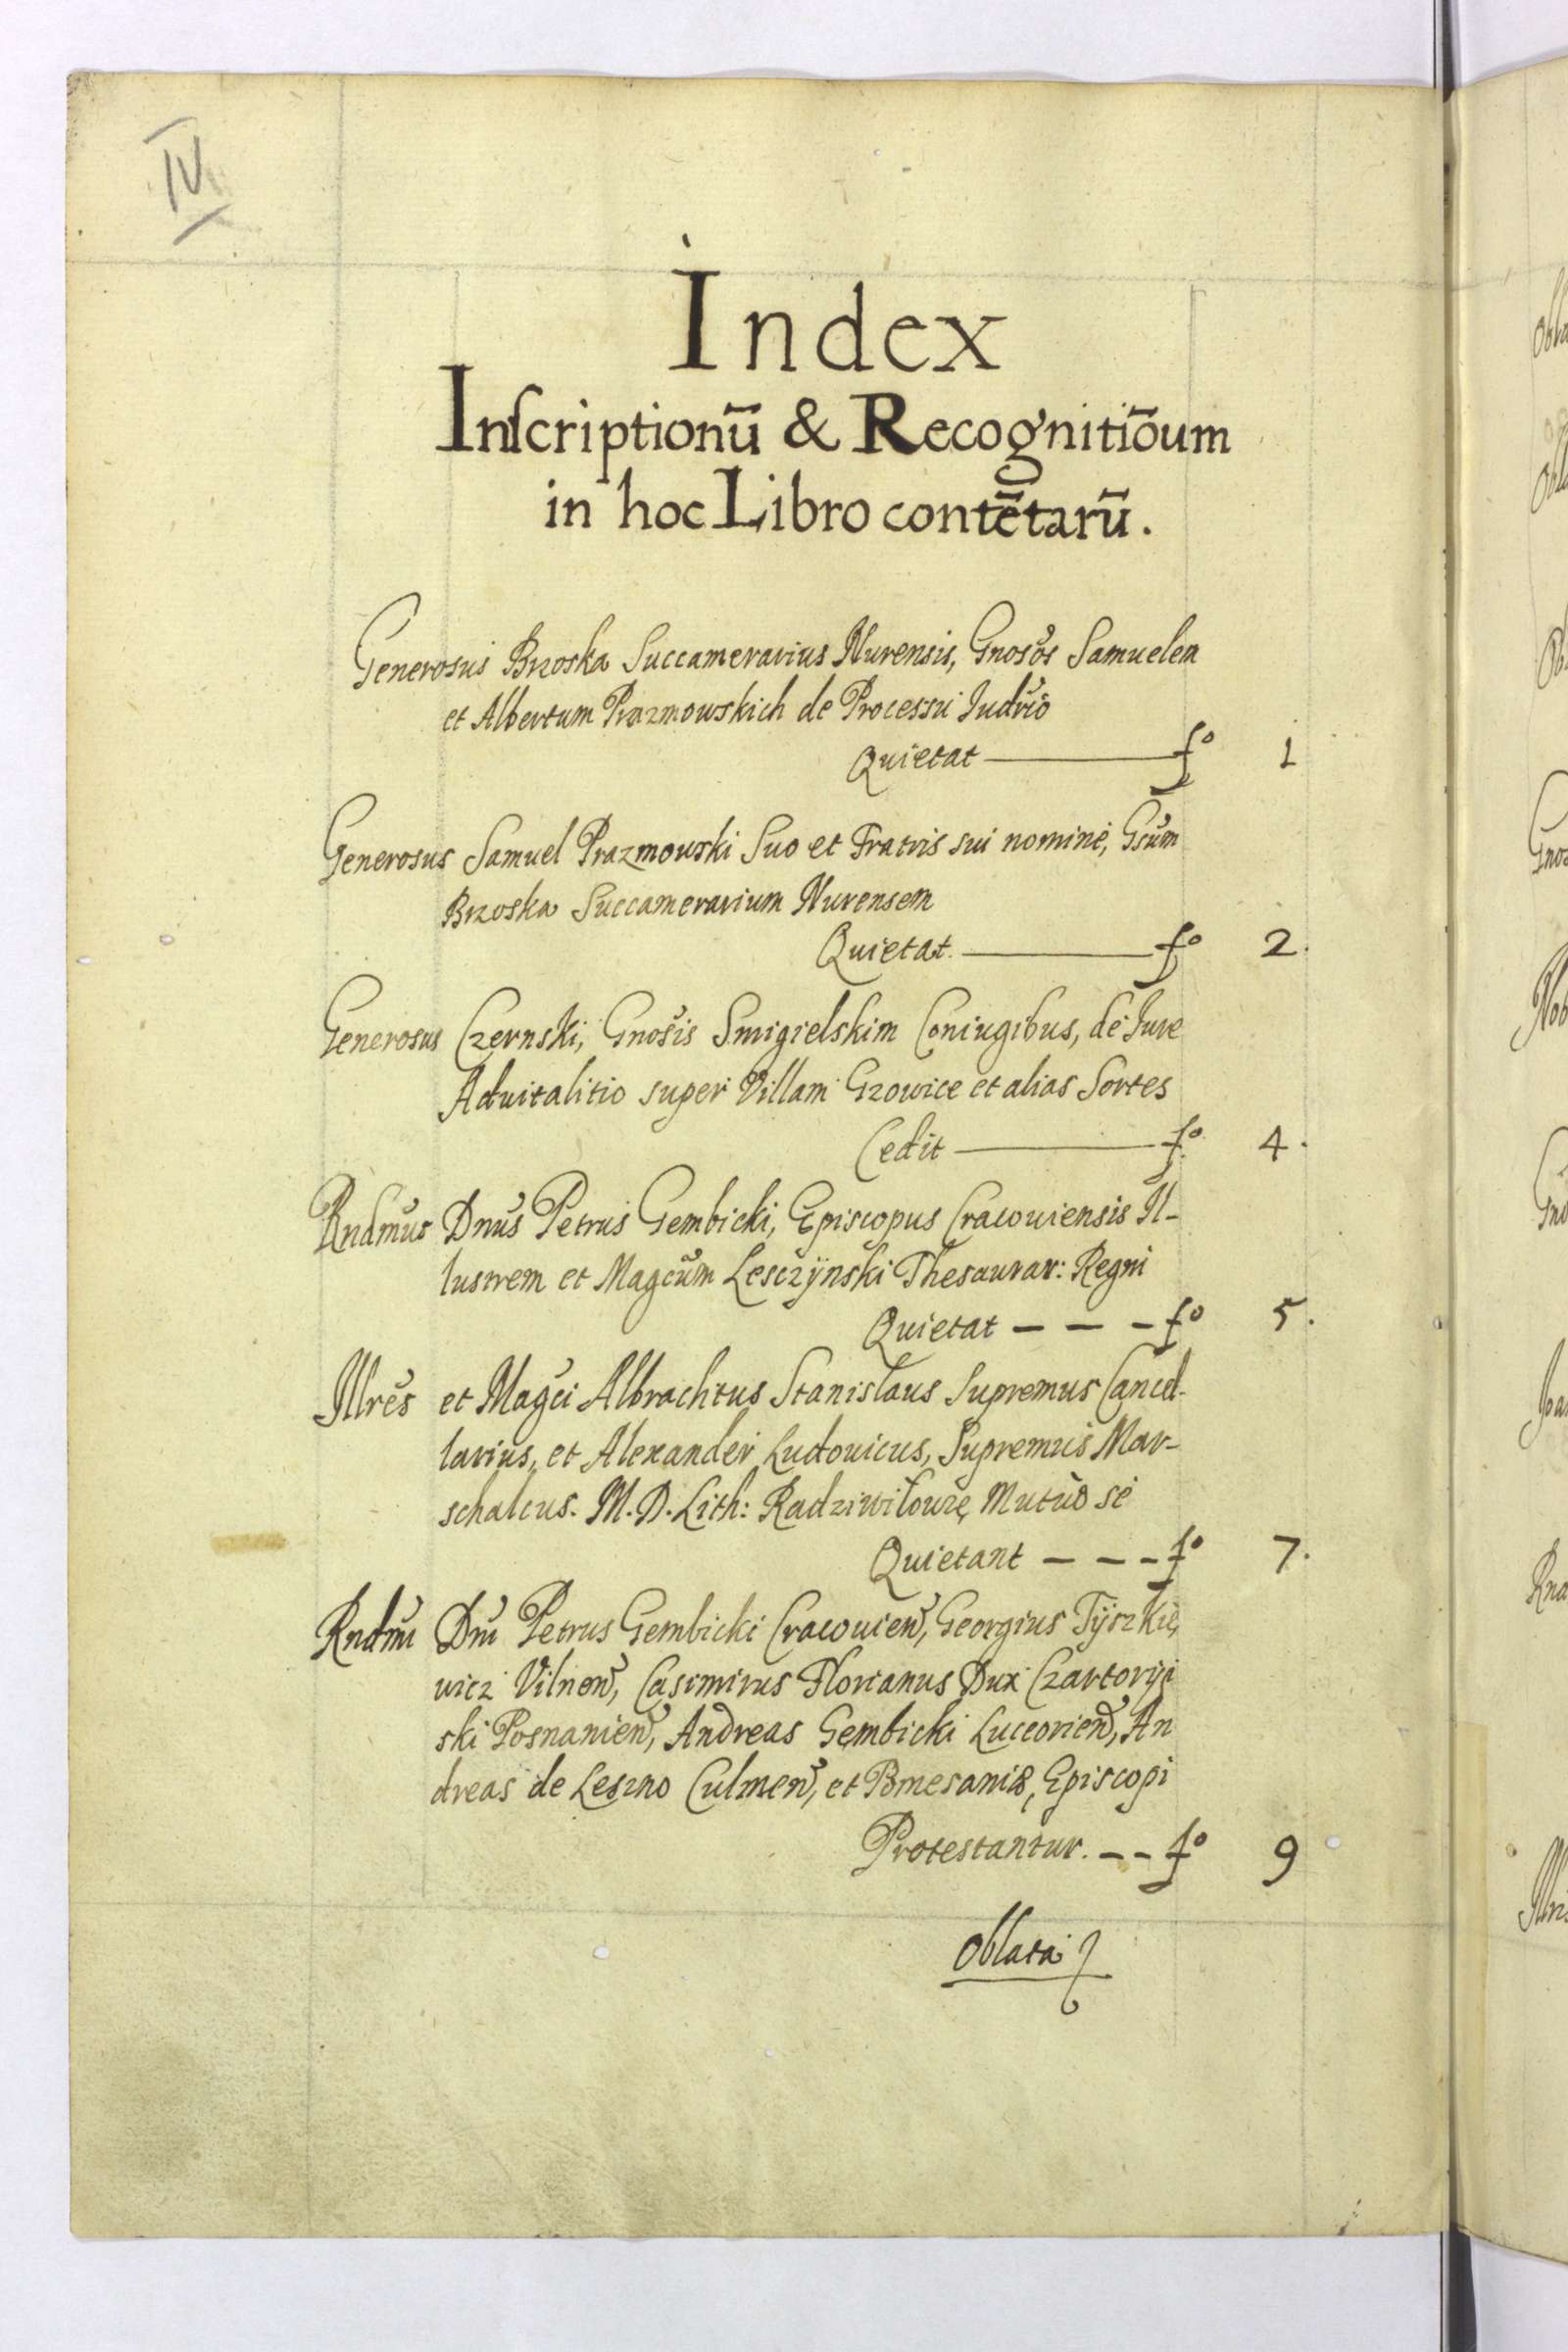 IV
Index
Inſcriptionũ & Recognitiõum
in hoc Libro contẽtarũ.
Generosus Brzoska Succamerarius Nurensis, Gnosos Samuelem
et Albertum Prazmowskich de Processu Judrio
Quietat — fo 1
Generosus Samuel Prazmowski Suo et Fratris sui nomine, Gsum
Brzoska Succamerarium Nurensem
Quietat. — fo 2.
Generosus Czernski, Gnosis Smigielskim Coniugibus, de Jure
Aduitalitio super Villam Gzowice et alias Sortes
Cedit — fo 4.
Rndmus Dnus Petrus Gembicki, Episcopus Cracouiensis Il-
lustrem et Magcum Lesczÿnski Thesaurar: Regni
Quietat – – – fo 5.
Illres et Magci Albrachtus Stanislaus Supremus Cancel-
larius, et Alexander Ludouicus, Supremus Mar-
schalcus. M. D. Lith: Radziwiłowię Mutuo se
Quietant – – – fo 7.
Rndmi Dni Petrus Gembicki Cracouien, Georgius Tÿszkie
wicz Vilnen, Casimirus Florianus Dux Czartoryi
ski Posnanien, Andreas Gembicki Luceorien, An
dreas de Leszno Culmen, et Pomesaniæ, Episcopi
Protestantur. – – fo 9
Oblata